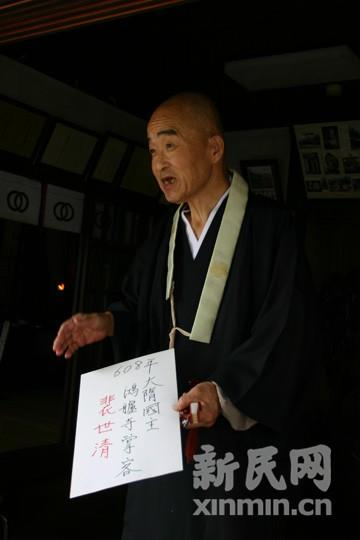 新民网
608年大隋國主
鴻臚寺掌客
裴世清
新民网
xinmin.cn